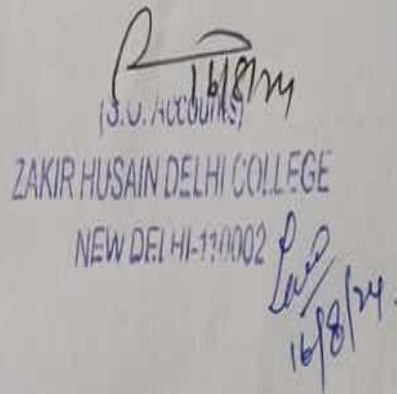 16/8/24
(S.O. Accounts)
ZAKIR HUSAIN DELHI COLLEGE
NEW DELHI-110002
16/8/24.